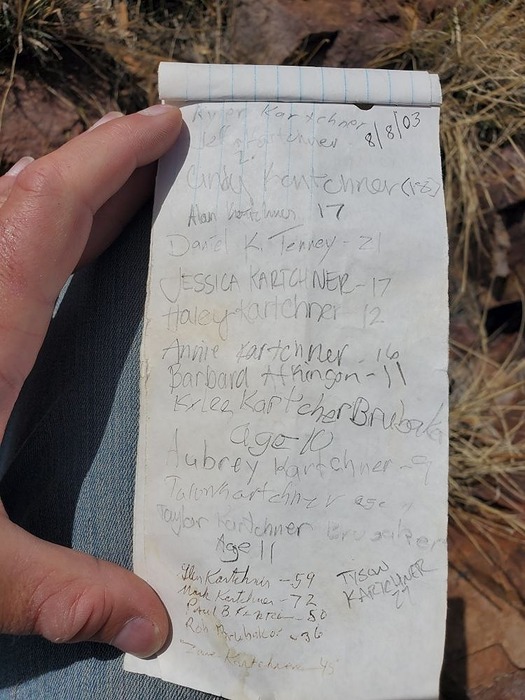 Kyler Kartchner
8/8/03
Jeff Kartchner
Cindy Kartchner
Alan Kartchner 17
Daniel K. Tenney - 21
JESSICA KARTCHNER - 17
Haley Kartchner 12
Annie Kartchner - 16
Barbara Atkinson - 11
Kartcher Brubak
age-10
Aubrey Kartchner - 9
Talon Kartchner age
Taylor Kartchner Brubaker
Age 11
Glen Kartchner - 59
TYSON
KARTCHNER
Mark Kartchner - 72
Paul B Kartchner - 50
Rob Brubaker - 36
Kartchner - 45